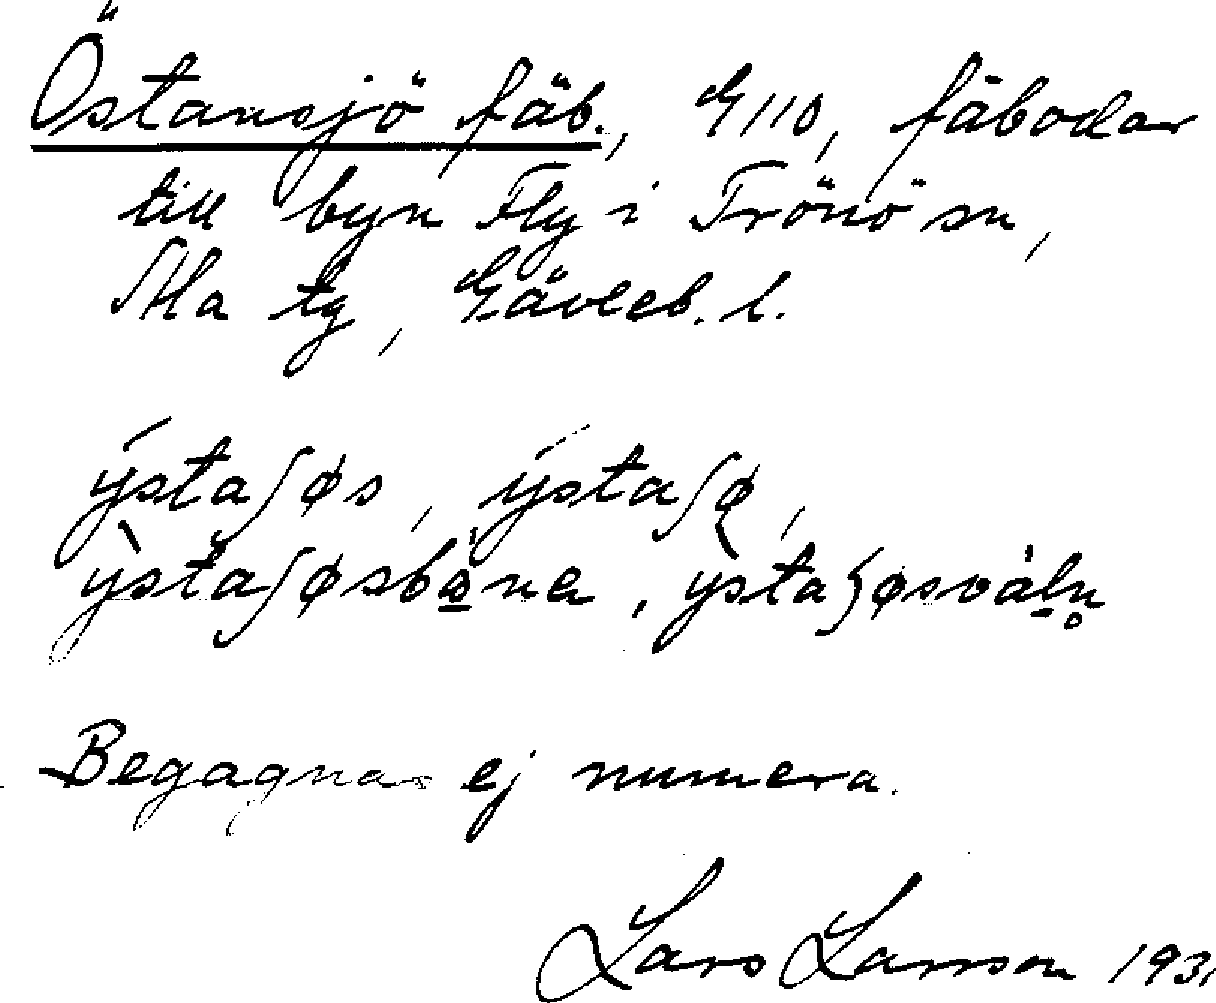 Östansjö fäb., G110, fäbodar
till byn Fly i Trönö sn,
Ala tg, Gävleb. l.
ýstaʃøs, ýstaʃø,
ỳstaʃøsbɷ̀na, ỳstaʃøsvàln̥
Begagnas ej numera.
Lars Larsson 1931